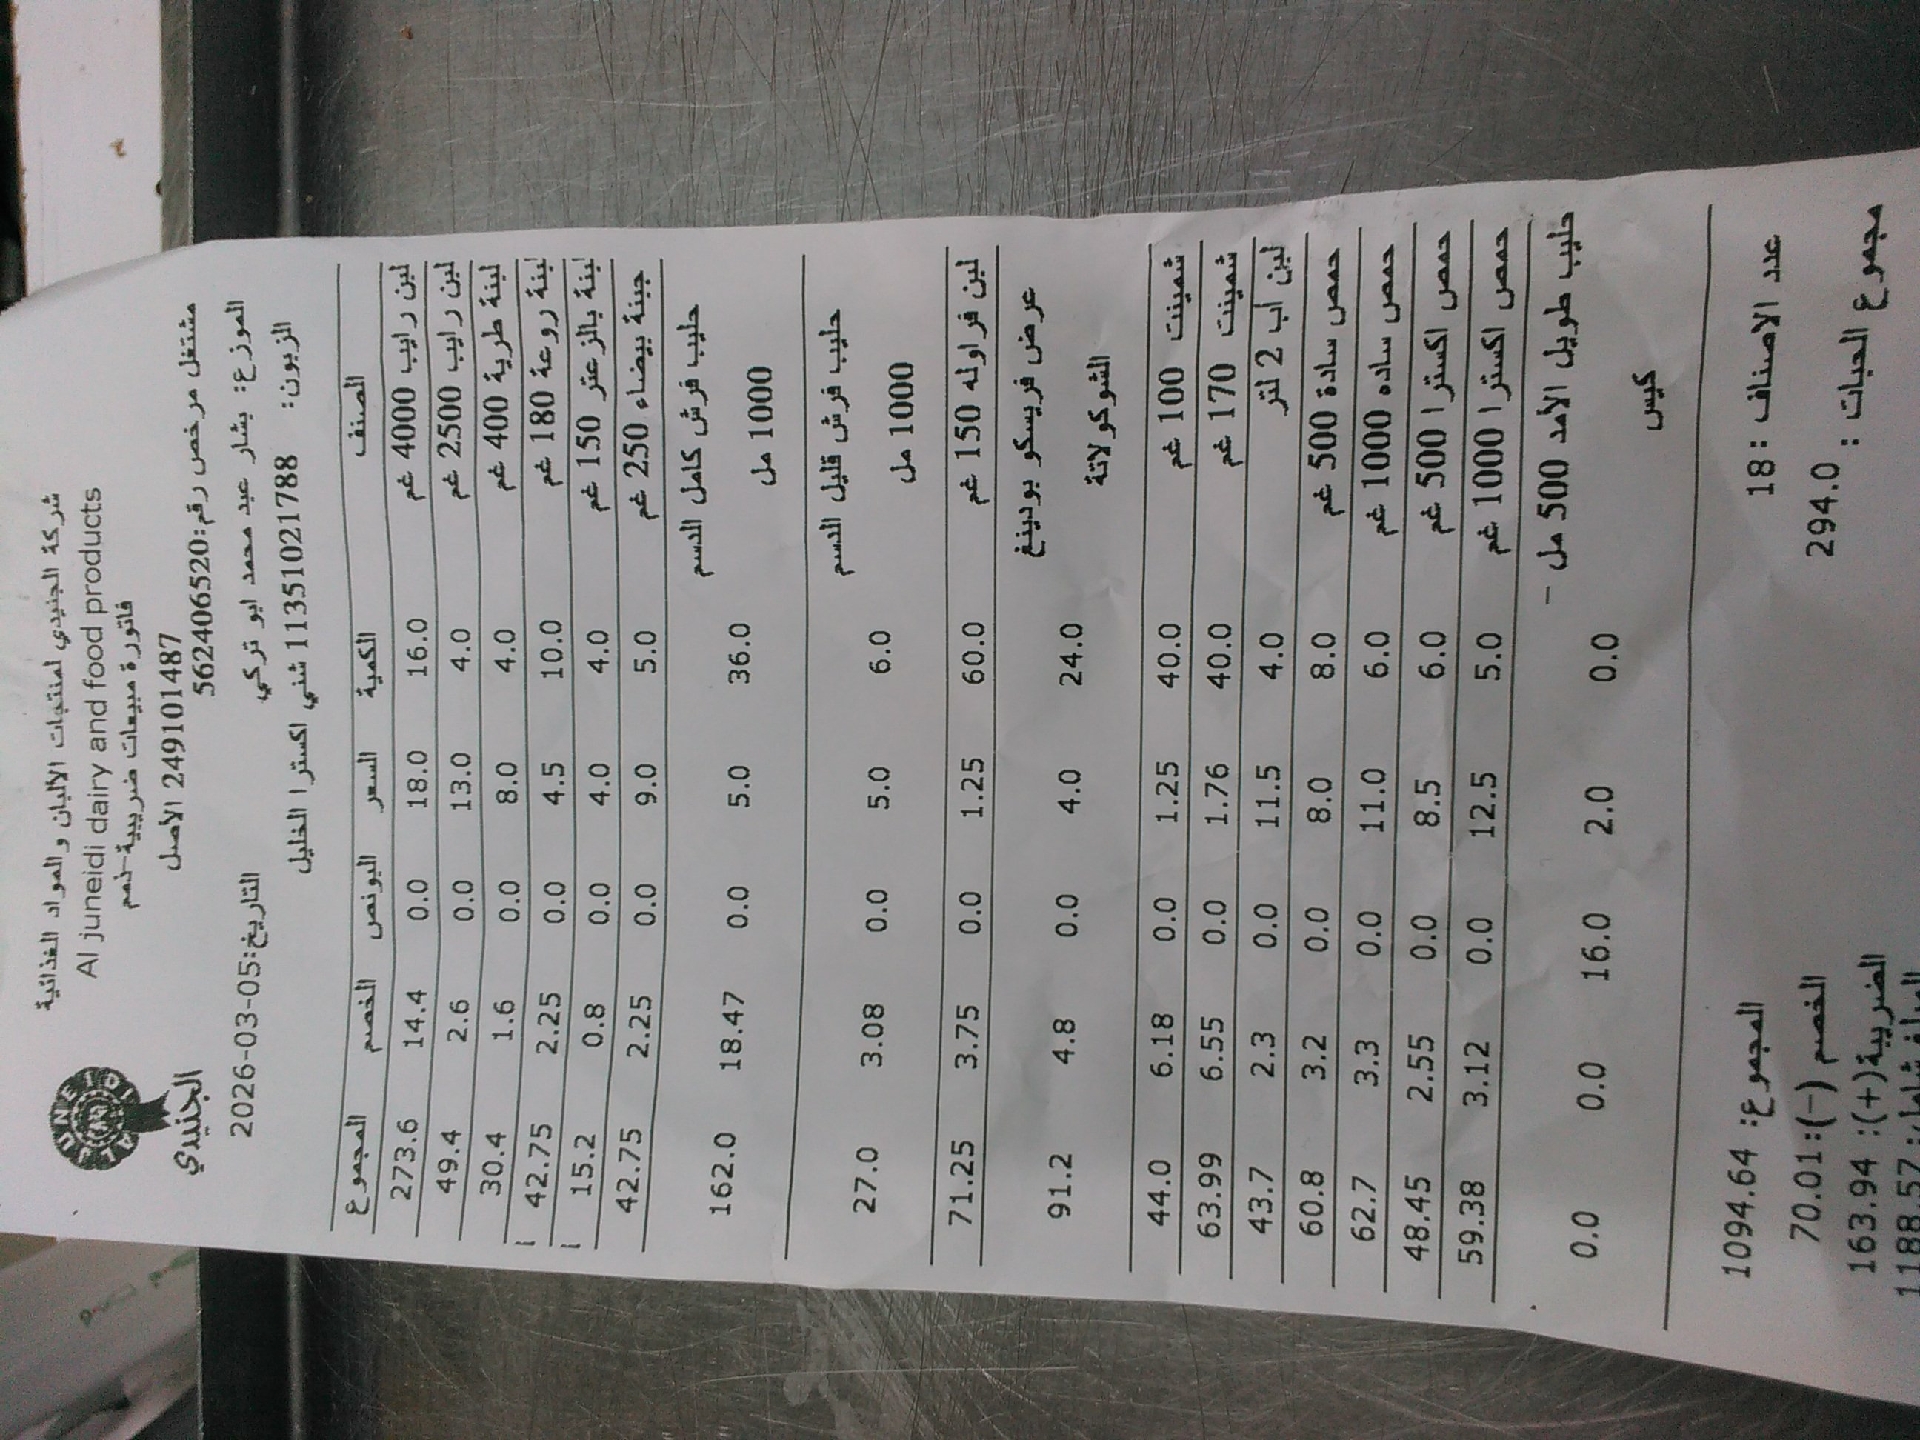 شركة الجنيدي لمنتجات الألبان والمواد الغذائية
Al juneidi dairy and food products
فاتورة مبيعات ضريبية-نعم
249101487 الأصل
مشتغل مرخص رقم:562406520
الجنيدي
الموزع: بشار عبد محمد ابو تركي
التاريخ:2026-03-05
الزبون: 11351021788 شني اكسترا الخليل
الصنف الكمية السعر البونص الخصم المجموع
لبن رايب 4000 غم 16.0 18.0 0.0 14.4 273.6
لبن رايب 2500 غم 4.0 13.0 0.0 2.6 49.4
لبنة طرية 400 غم 4.0 8.0 0.0 1.6 30.4
لبنة روعة 180 غم 10.0 4.5 0.0 2.25 42.75
لبنة بالزعتر 150 غم 4.0 4.0 0.0 0.8 15.2
جبنة بيضاء 250 غم 5.0 9.0 0.0 2.25 42.75
حليب فرش كامل الدسم
1000 مل 36.0 5.0 0.0 18.47 162.0
حليب فرش قليل الدسم
1000 مل 6.0 5.0 0.0 3.08 27.0
لبن فراوله 150 غم 60.0 1.25 0.0 3.75 71.25
عرض فريسكو بودينغ
الشوكولاتة 24.0 4.0 0.0 4.8 91.2
شمينت 100 غم 40.0 1.25 0.0 6.18 44.0
شمينت 170 غم 40.0 1.76 0.0 6.55 63.99
لبن اب 2 لتر 4.0 11.5 0.0 2.3 43.7
حمص سادة 500 غم 8.0 8.0 0.0 3.2 60.8
حمص ساده 1000 غم 6.0 11.0 0.0 3.3 62.7
حمص اكسترا 500 غم 6.0 8.5 0.0 2.55 48.45
حمص اكسترا 1000 غم 5.0 12.5 0.0 3.12 59.38
حليب طويل الأمد 500 مل -
كيس 0.0 2.0 16.0 0.0 0.0
عدد الاصناف :18 المجموع: 1094.64
مجموع الحبات : 294.0 الخصم (-):70.01
الضريبة(+): 163.94
1188.57